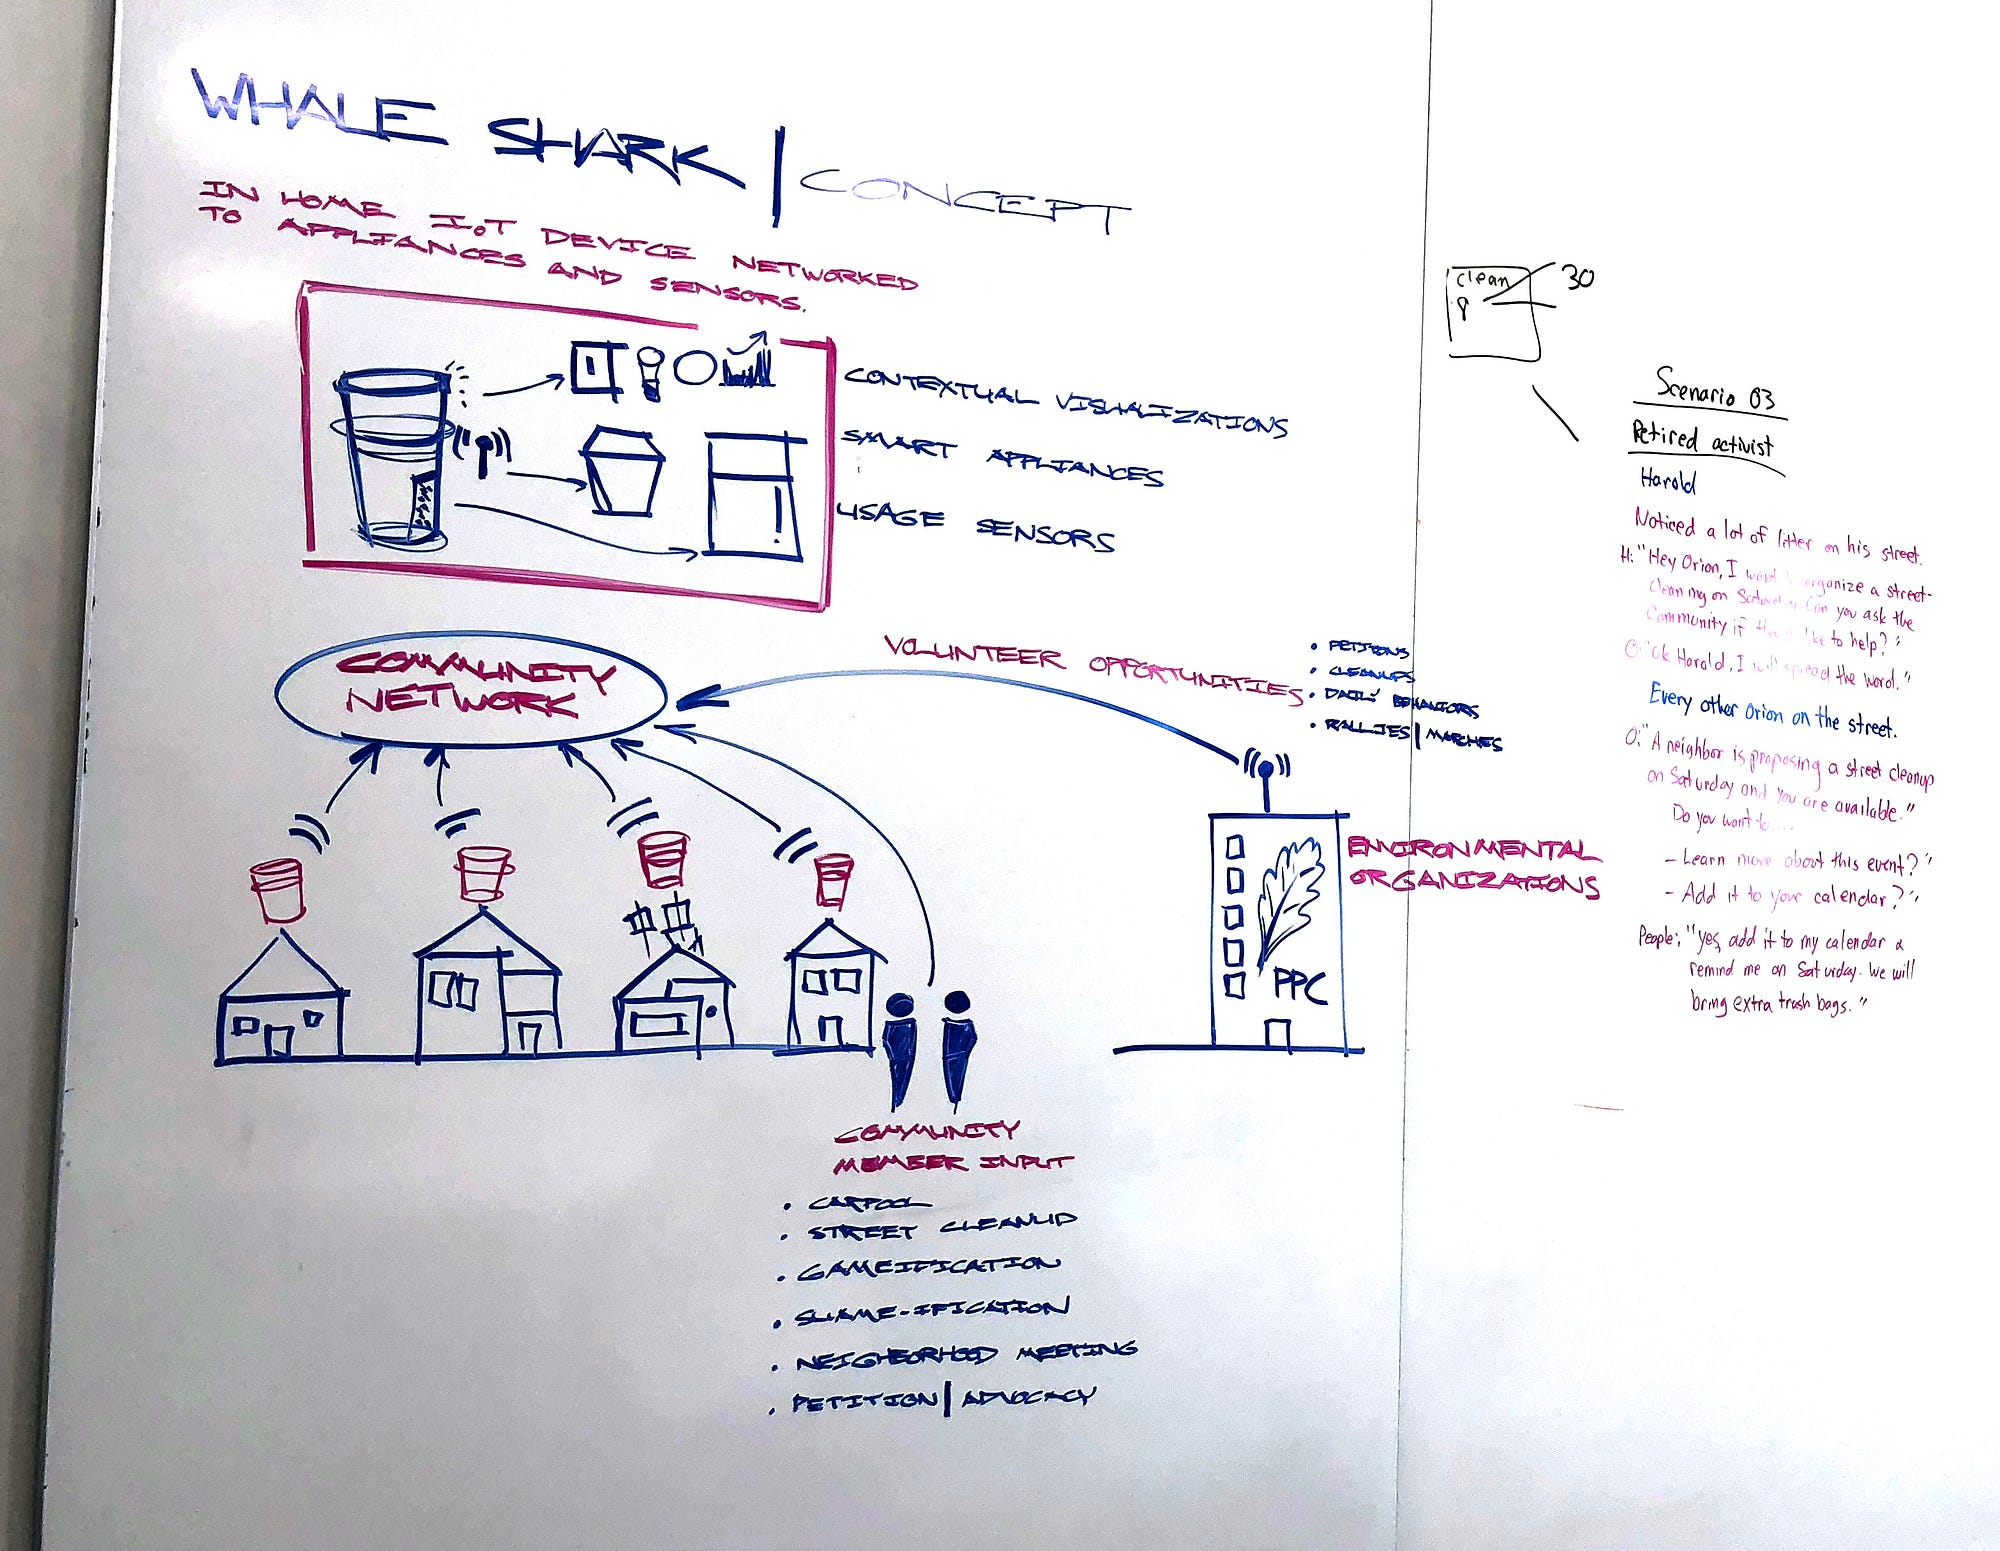 WHALE SHARK | CONCEPT
IN HOME IoT DEVICE NETWORKED
TO APPLIANCES AND SENSORS.
CONTEXTUAL VISUALIZATIONS
SMART APPLIANCES
USAGE SENSORS
COMMUNITY
NETWORK
VOLUNTEER OPPORTUNITIES
• PETITIONS
• CLEANUPS
• DAILY BEHAVIORS
• RALLIES | MARCHES
ENVIRONMENTAL
ORGANIZATIONS
PPC
COMMUNITY
MEMBER INPUT
• CARPOOL
• STREET CLEANUP
• GAMEIFICATION
• SHAME-IFICATION
• NEIGHBORHOOD MEETING
• PETITION | ADVOCACY
clean
30
Scenario 03
Retired activist
Harold
Noticed a lot of litter on his street.
H: "Hey Orion, I want to organize a street-
cleaning on Saturday. Can you ask the
Community if they'd like to help?"
O: "Ok Harold, I will spread the word."
Every other Orion on the street.
O: "A neighbor is proposing a street cleanup
on Saturday and you are available."
Do you want to....
- Learn more about this event?"
- Add it to your calendar?"
People: "yes, add it to my calendar &
remind me on Saturday. We will
bring extra trash bags."